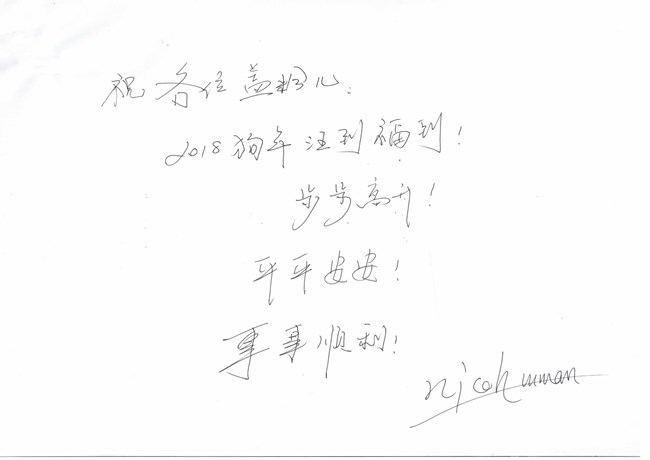 祝 各位盖粉儿.
2018狗年汪到福到!
步步高升!
平平安安!
事事顺利!